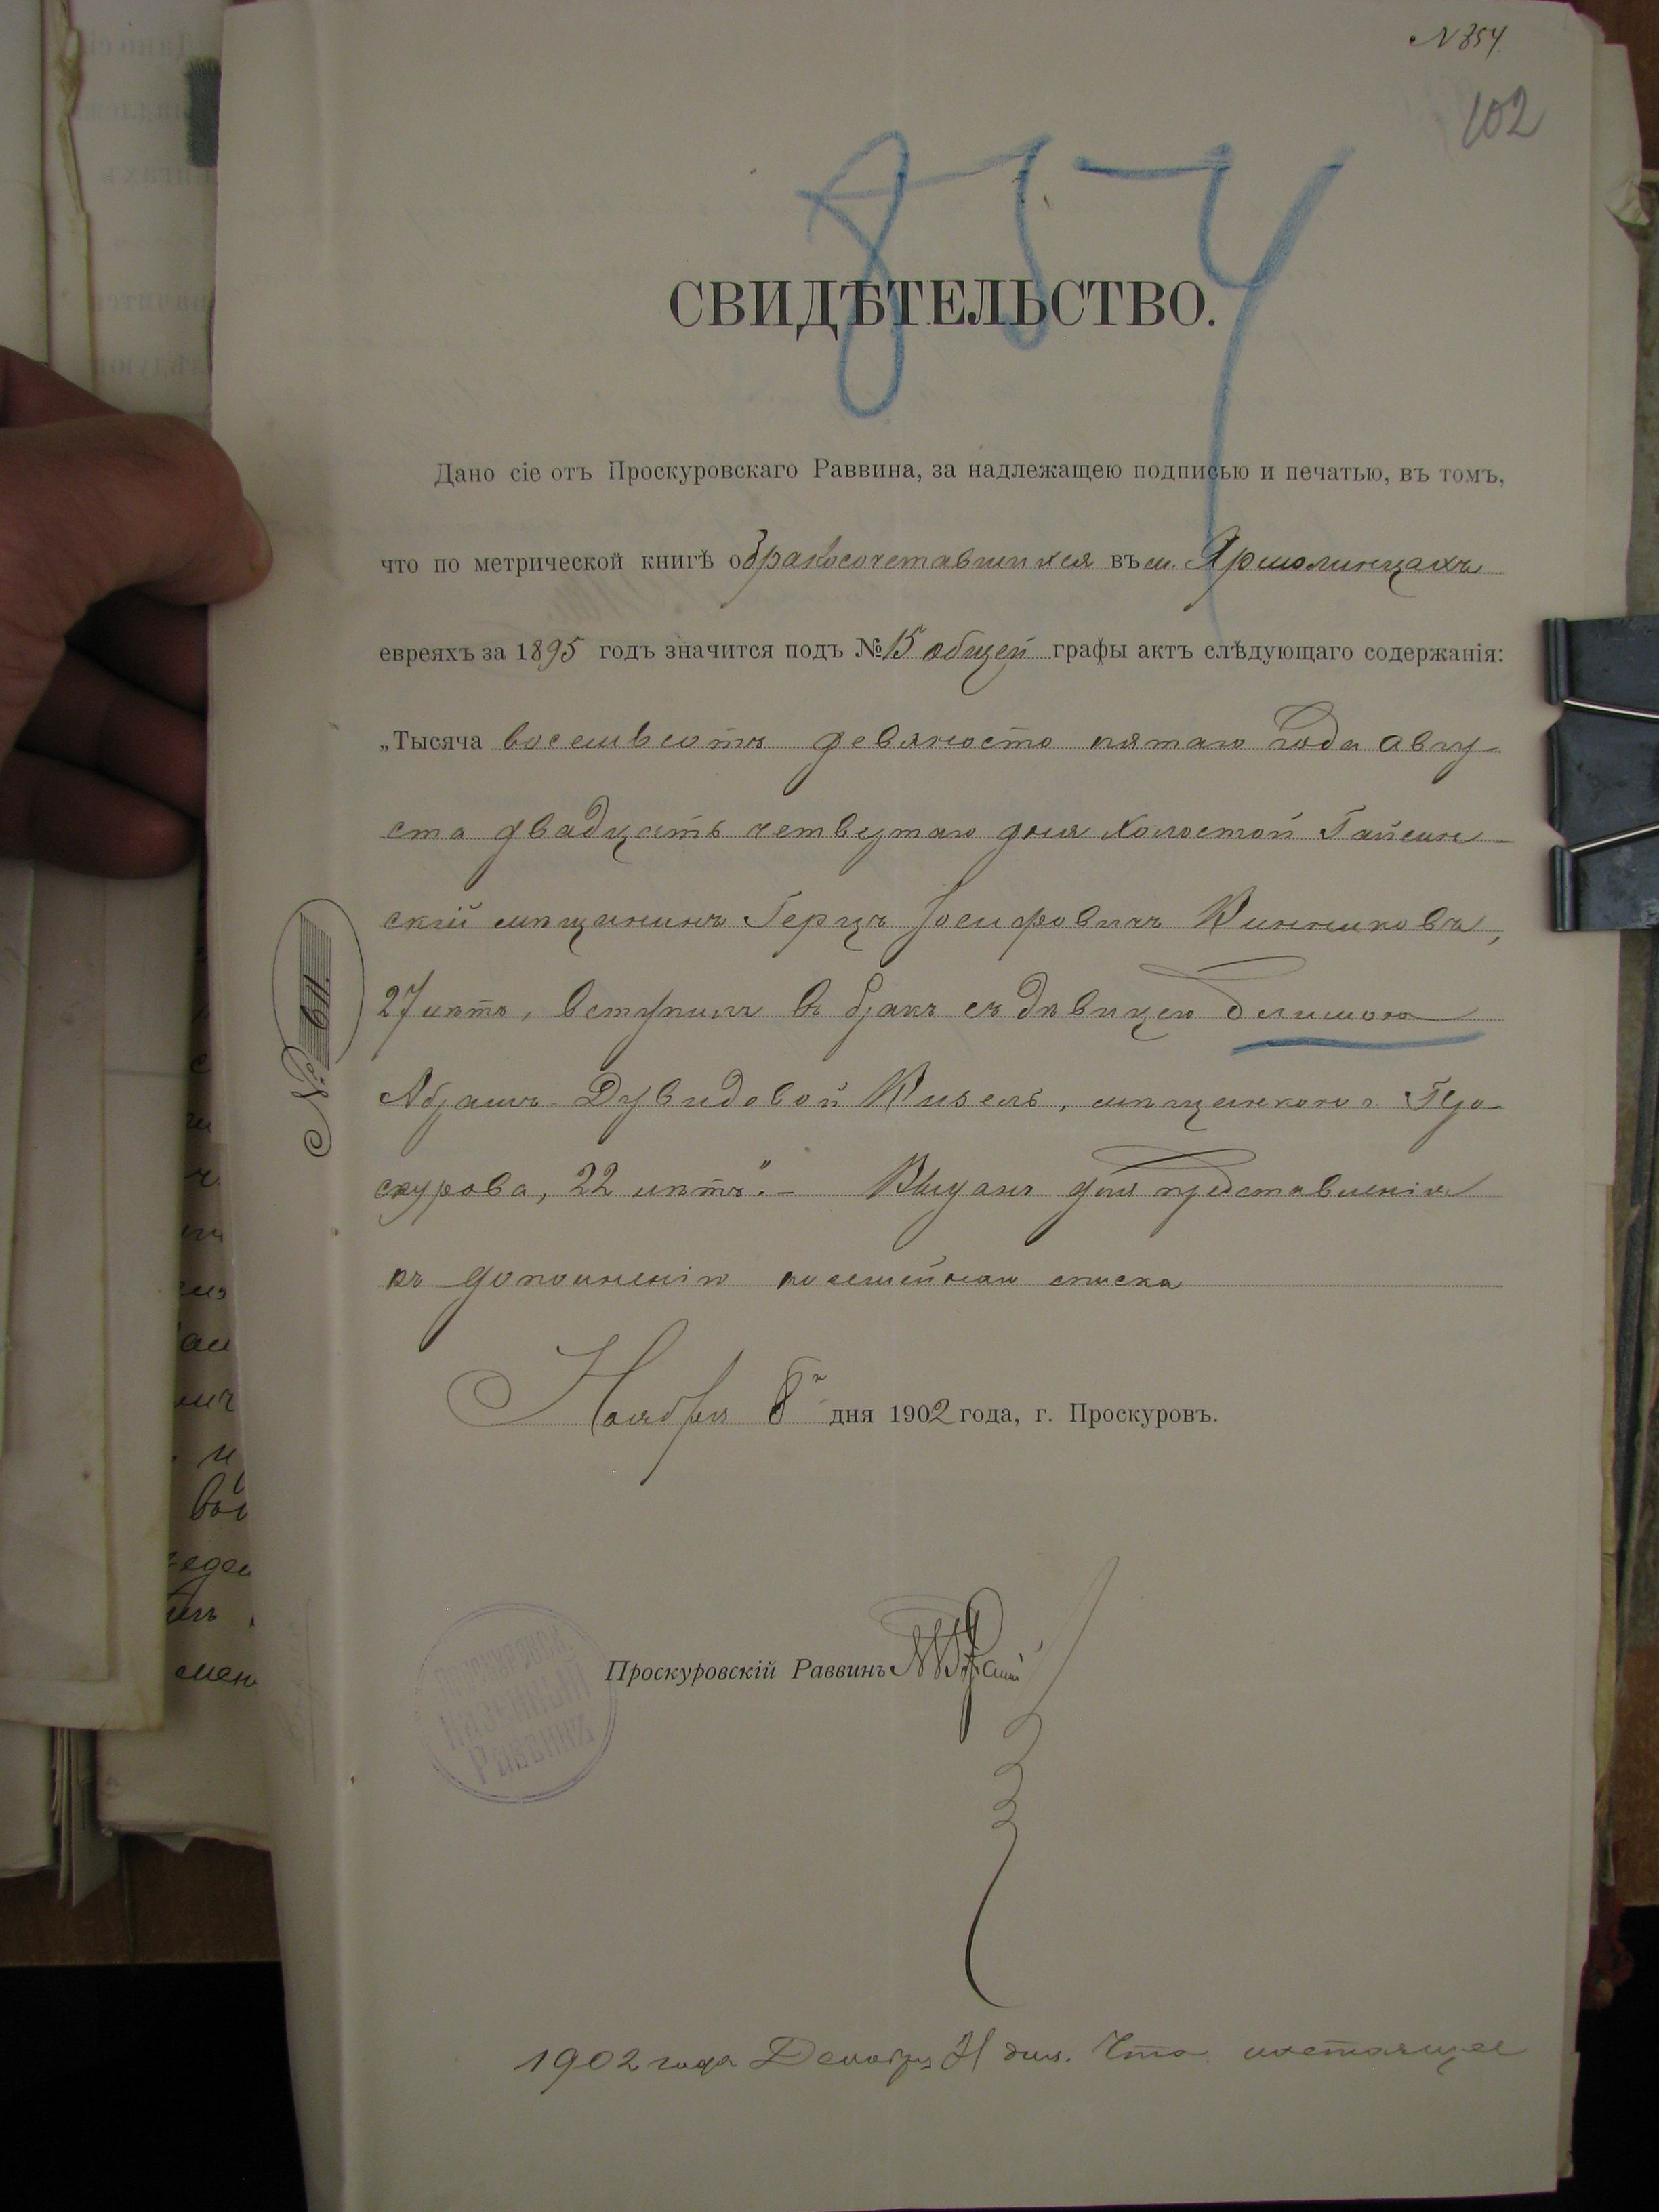 N 854.
102
854
СВИДѢТЕЛЬСТВО.
Дано сіе отъ Проскуровскаго Раввина, за надлежащею подписью и печатью, въ томъ,
что по метрической книгѣ о бракосочетавшихся въ м. Ярмолинцахъ
евреяхъ за 1895 годъ значится подъ № 15 общей графы актъ слѣдующаго содержанія:
„Тысяча восемьсотъ девяносто пятаго года авгу-
ста двадцать четвертаго дня холостой Гайсин-
скій мѣщанинъ Герцъ Іосифовичъ Винниковъ,
27 лѣтъ, вступилъ въ бракъ съ дѣвицею
Абрамъ-Дувидовой Кизель, мѣщанкою г. Про-
скурова, 22 лѣтъ". – Выданъ для представленія
къ дополненію посемейнаго списка
Ноября 8го дня 1902 года, г. Проскуровъ.
№ 611.
Проскуровскій Раввинъ
ПРОСКУРОВСК.
КАЗЕННЫЙ
РАВВИНЪ
1902 года Декабря дня. Что настоящее